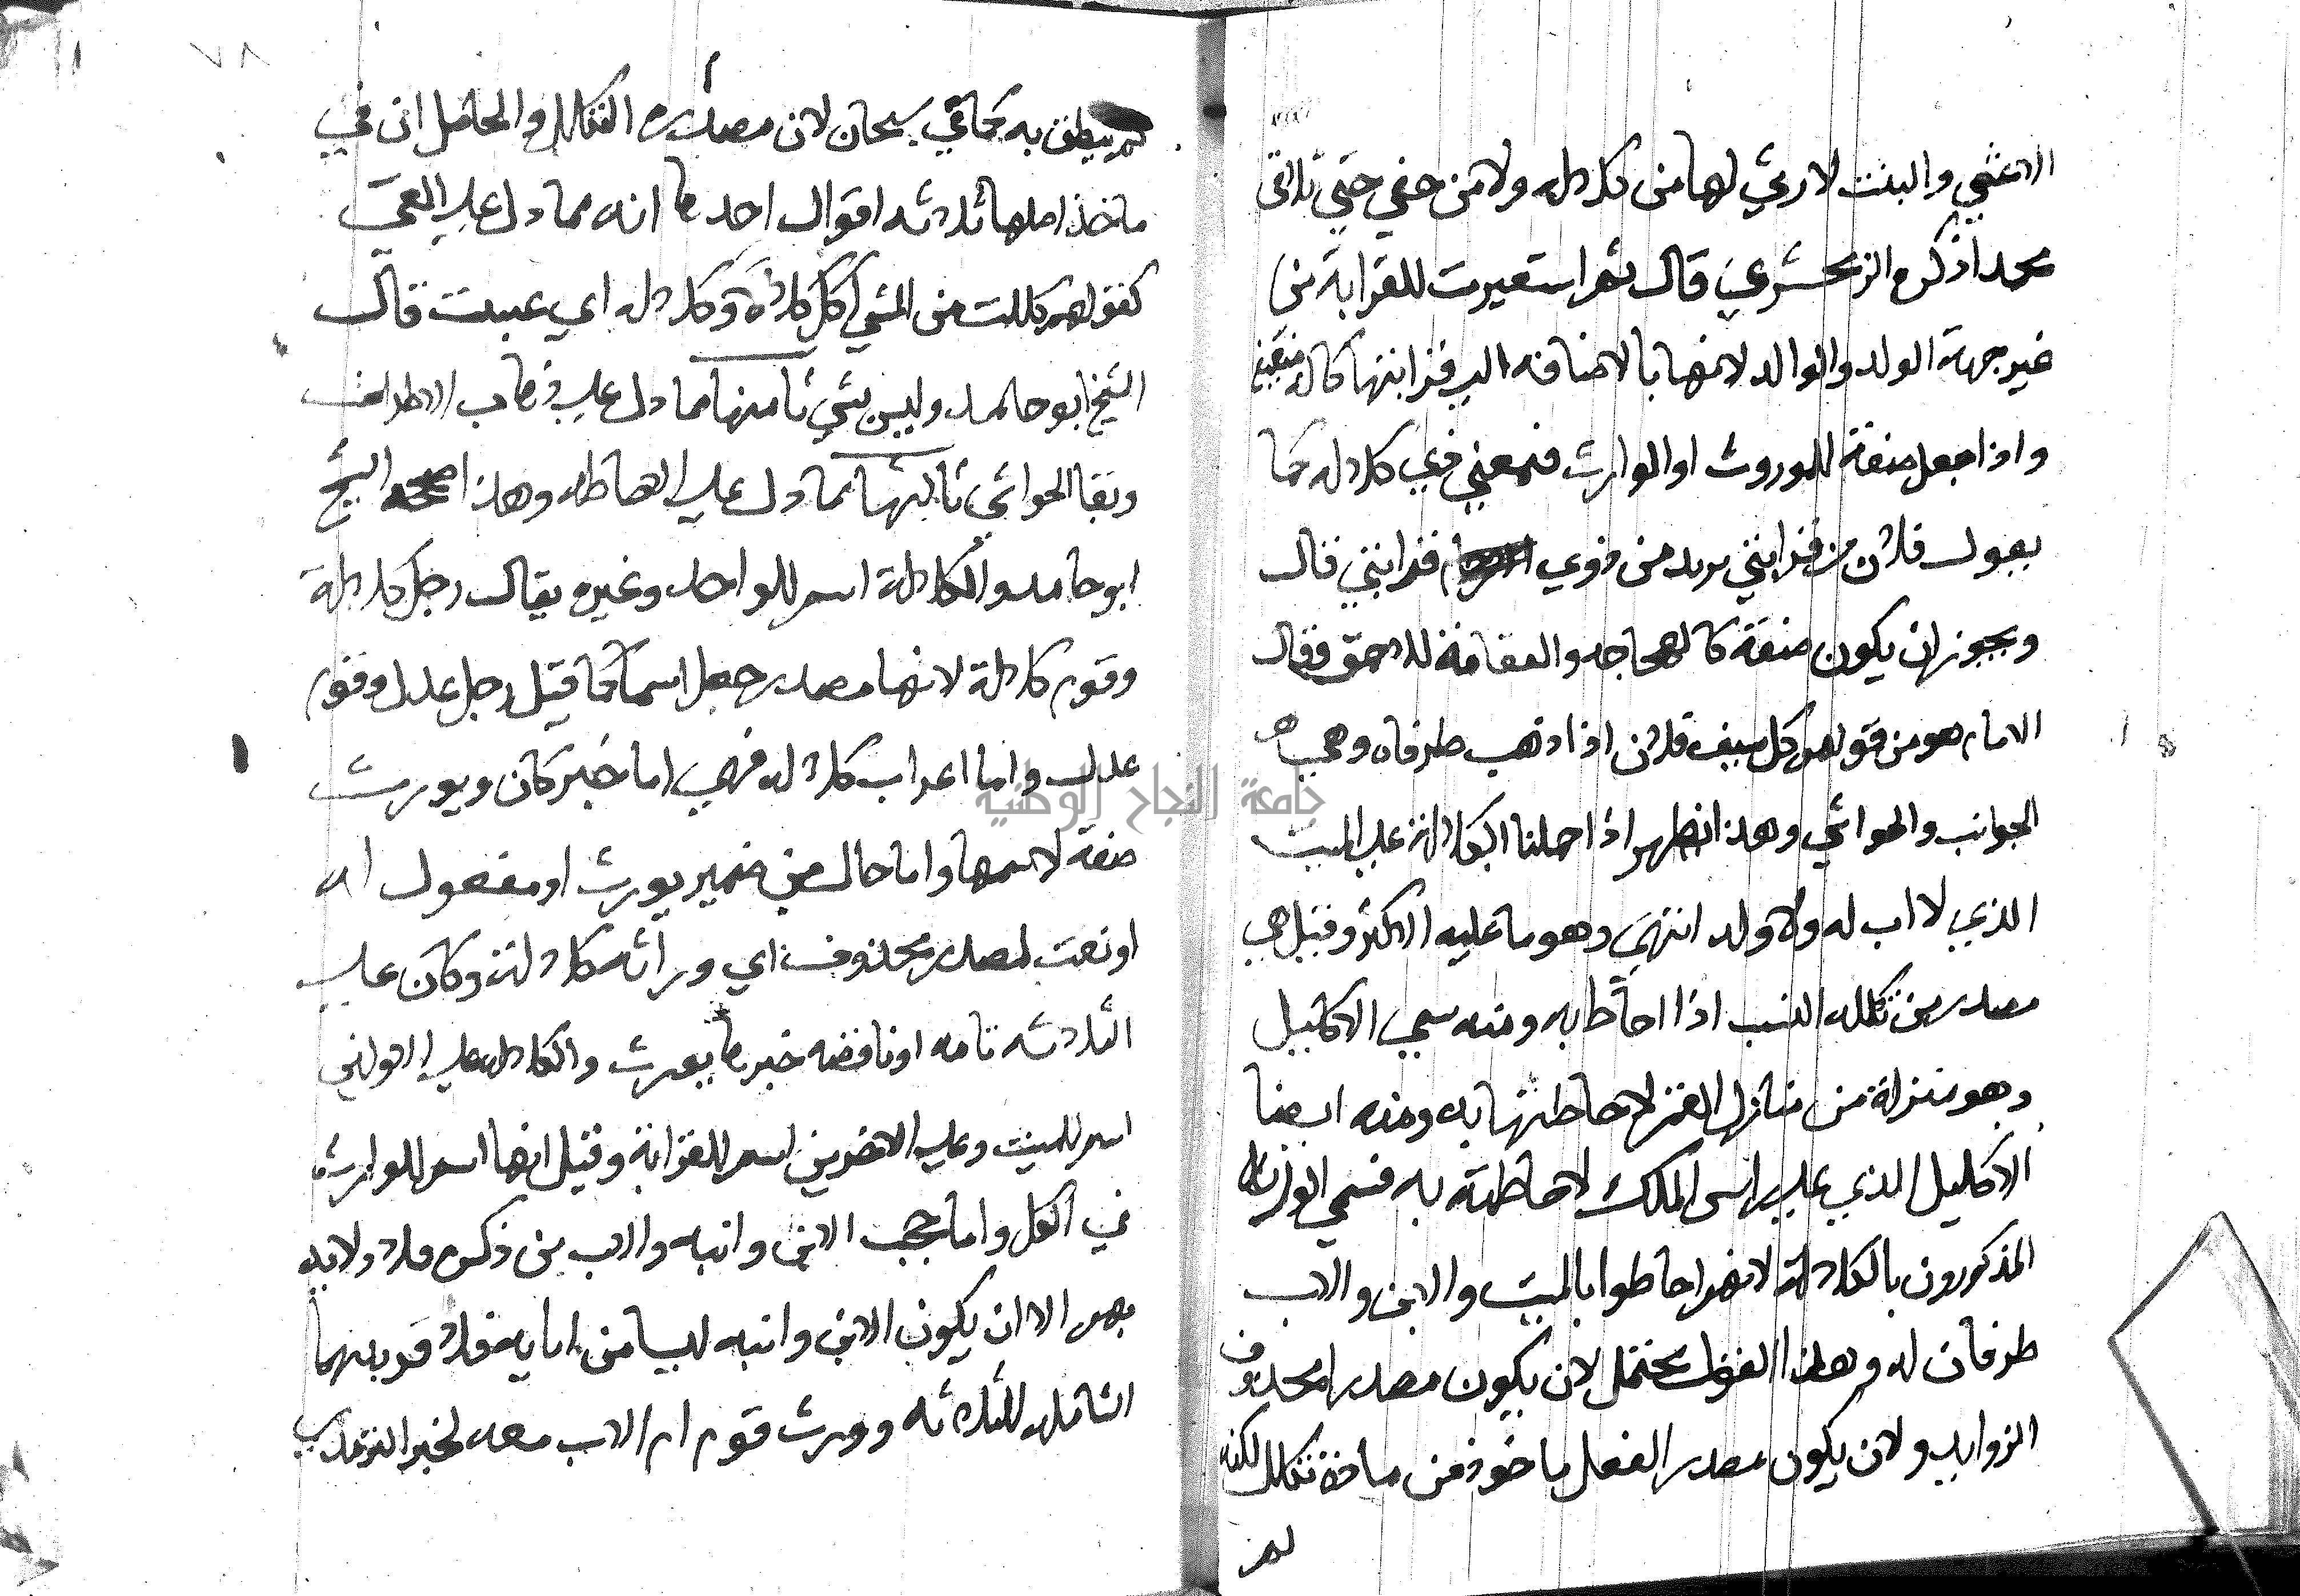 الاعشي والبنت لا رثي لها من كلاله ولا من حفي حتي تلاقي
محمدا ذكره الزمخشري قال ثم استعيرت للقرابة من
غير جهة الولد والوالد لانها بالاضافه الي قرابتها كاله ضعيفة
واذا جعل صفة للموروث او الوارث فبمعني ذي كلاله كما
يقول فلان من قرابتي يريد من ذوي قرابتي قال
ويجوز ان يكون صفة كالهجاجه والفقاقة للاحمق وقال
الامام هو من قولهم كل سيف فلان اذا ذهب طرفاه وهي
الجوانب والحواشي وهذا اظهر اذا حملنا الكلالة علي الميت
الذي لا اب له ولا ولد انتهي وهو ما عليه الاكثر وقيل هي
مصدر من تكلله النسب اذا احاط به ومنه سمي الاكليل
وهو منزلة من منازل القمر لاحاطتها به ومنه ايضا
الاكليل الذي علي راس الملك لاحاطته به فسمي الوارث
المذكورون بالكلالة لانهم احاطوا بالميت والابن والاب
طرفان له وهذا القول يحتمل لان يكون مصدرا محذوف
الزوايد ولان يكون مصدر الفعل ماخوذ من مادة تكلل لكنه
لم
٧٨
لم ينطق به كما في سبحان لان مصدره التكلل والحاصل ان في
ماخذ اصلها ثلاثه اقوال احدها انه مما دل علي العي
كقولهم كللت من المشي اكل كلالا وكلاله اي عييت قال
الشيخ ابو حامد وليس بشي ثانيها مما دل علي ذهاب الاطراف
وبقا الحواشي ثالثها مما دل علي الاحاطه وهذا صححه الشيخ
ابو حامد والكلالة اسم للواحد وغيره يقال رجل كلالة
وقوم كلالة لانها مصدر جعل اسما كما قيل رجل عدل وقوم
عدل واما اعراب كلاله فهي اما خبر كان ويورث
صفة لاسمها واما حال من ضمير يورث او مفعول له
او نعت لمصدر محذوف اي وراثه كلالة وكان علي
الثلاثه تامه او ناقصه خبرها يورث والكلاله علي الاولين
اسم للميت وعلي الاخرين اسم للقرابة وقيل انها اسم للوارث
في الكل واما حجب الابن وابنه والاب من ذكره فلا ولايه
بهم الا ان يكون الابن وابنه ليسا من اما به فلا قوبهما
الشامله للثلاثه وورث قوم ام الاب معه لخبر الترمذي
جامعة النجاح الوطنية